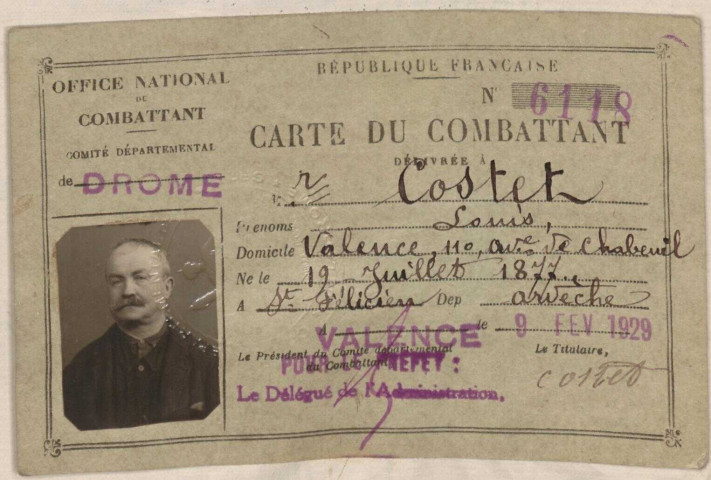 OFFICE NATIONAL
DU
COMBATTANT
COMITÉ DÉPARTEMENTAL
de DROME
RÉPUBLIQUE FRANÇAISE
N° 6118
CARTE DU COMBATTANT
DÉLIVRÉE À
Mr Costet
Prenoms Louis,
Domicile Valence, 110, ave de Chabeuil
Ne le 19 Juillet 1877,
A St Félicien Dep ardèche
A VALENCE le 9 FEV 1929
Le Président du Comité départemental
du Combattant,
POUR LE PREFET :
Le Délégué de l'Administration,
Le Titulaire,
costet